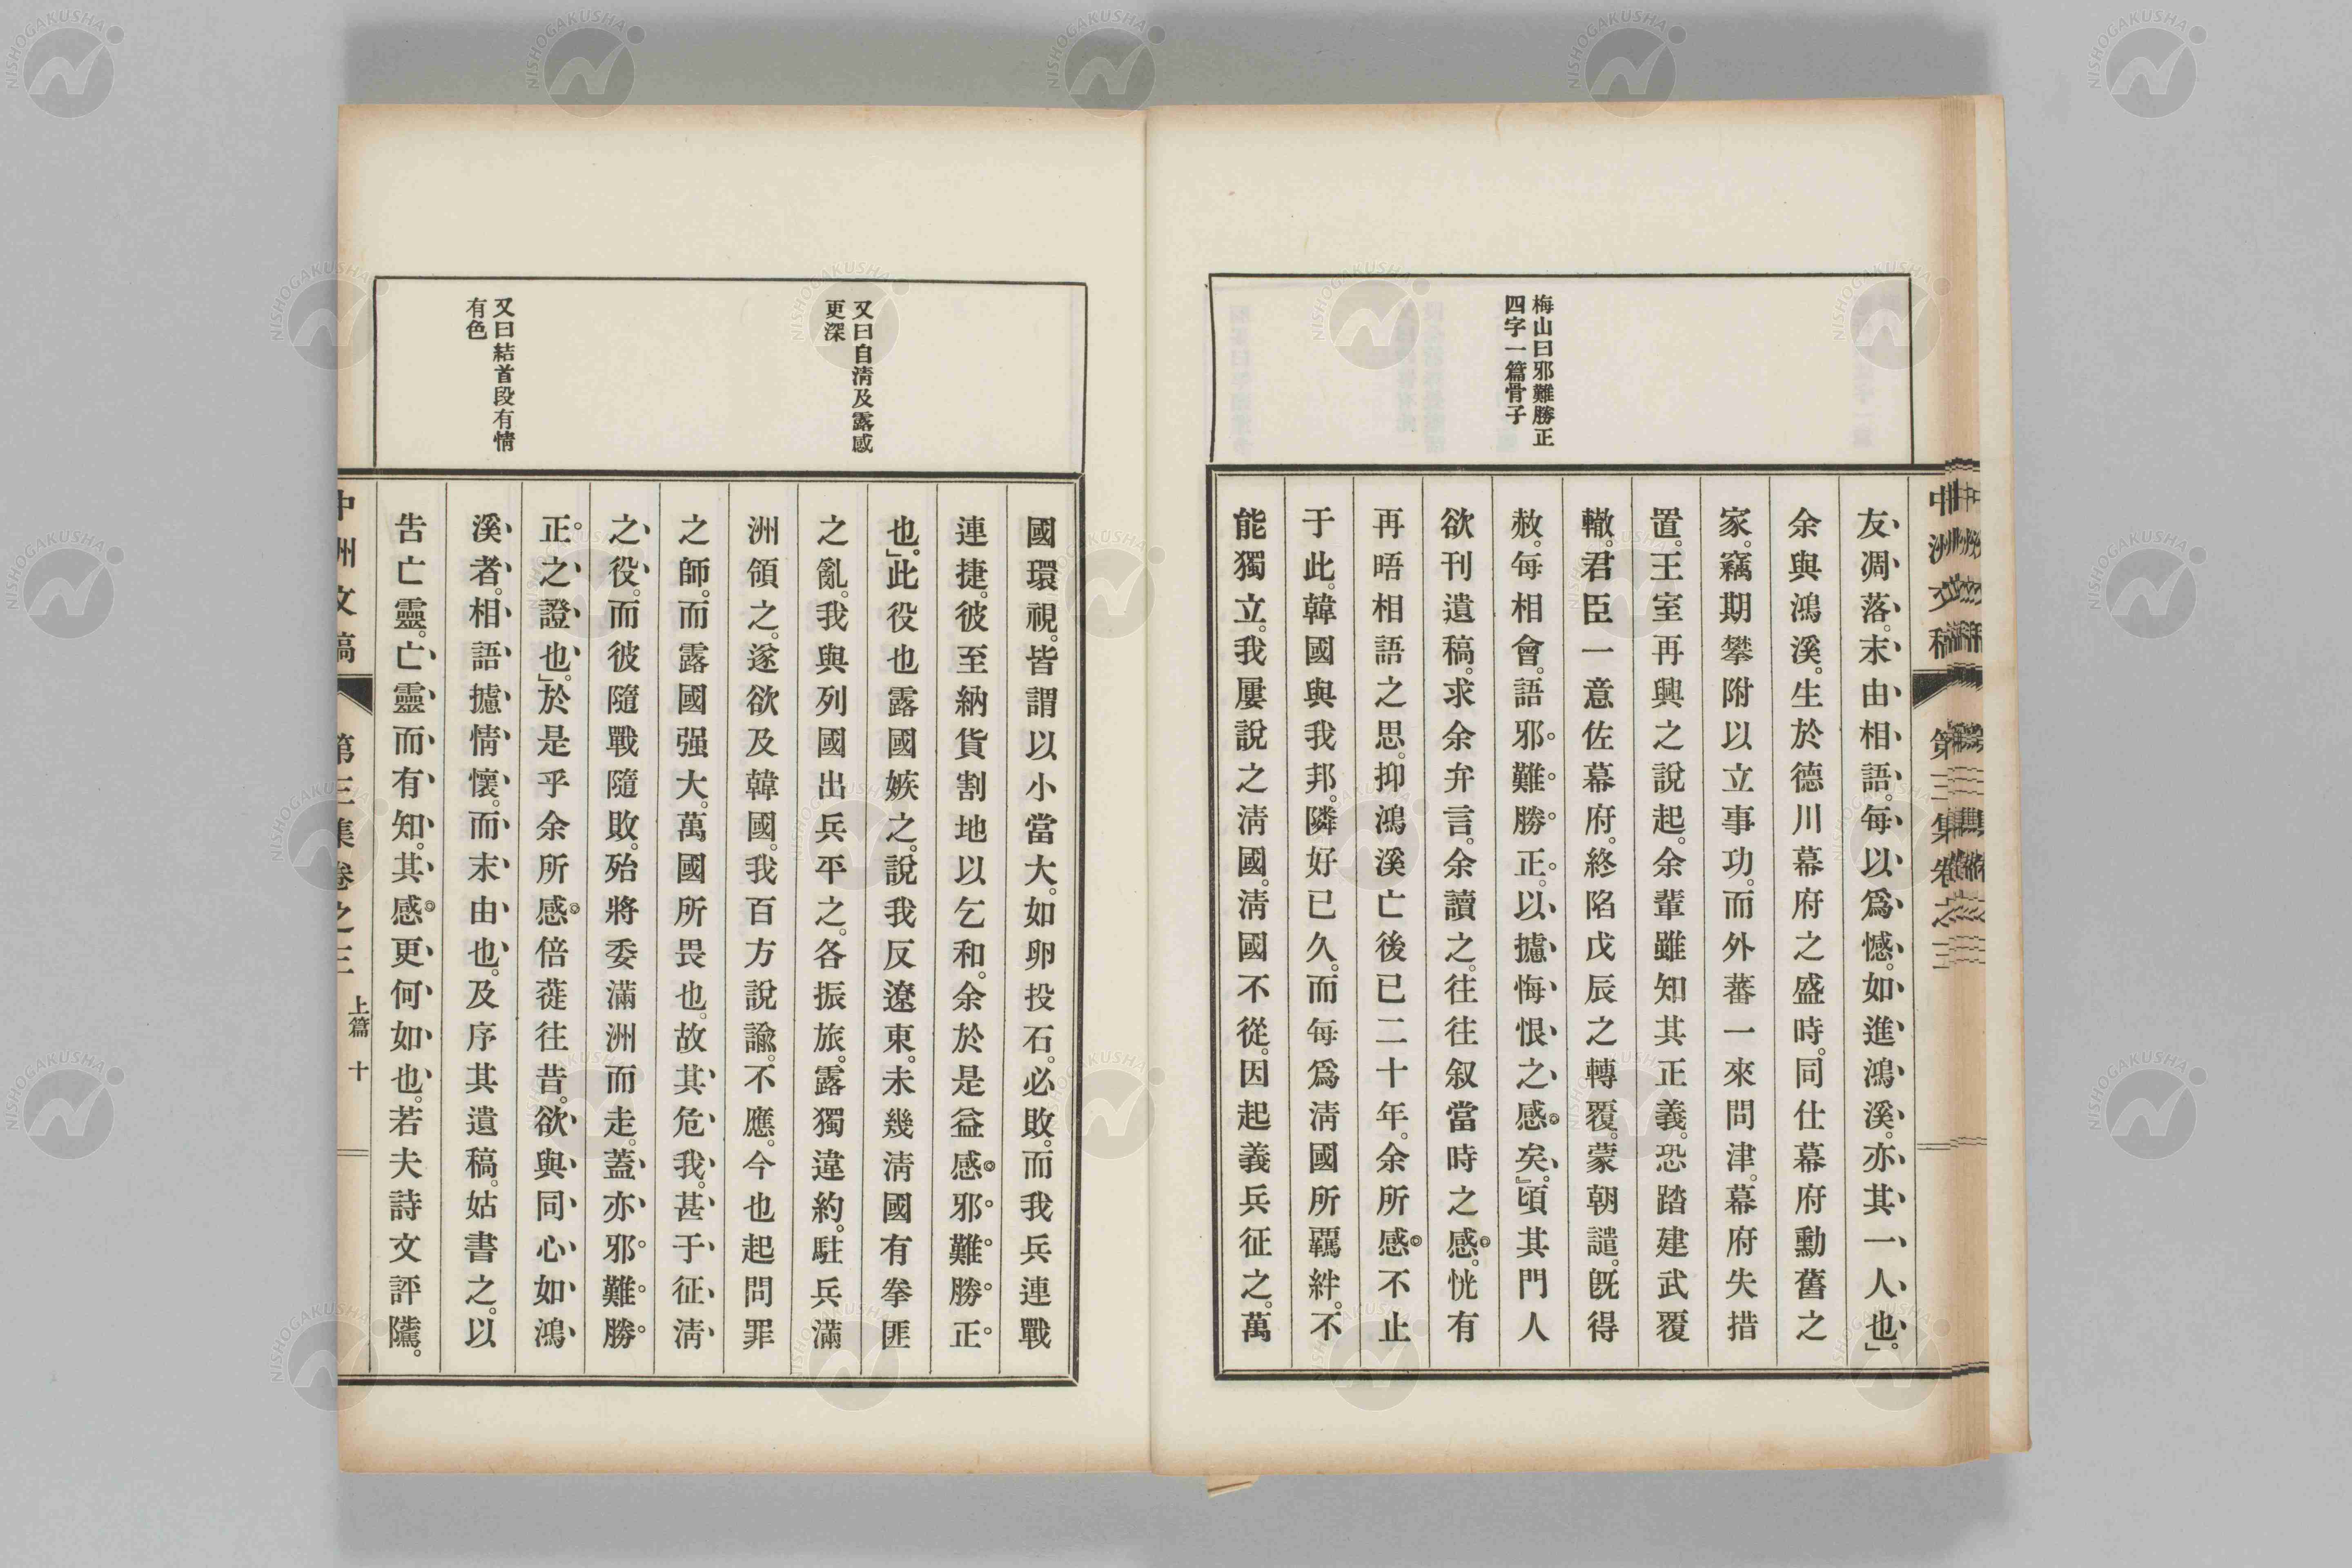 中洲文稿 第三集卷之三
友凋落。末由相語。每以爲憾。如進鴻溪。亦其一人也」。
余與鴻溪。生於德川幕府之盛時。同仕幕府勳舊之
家。竊期攀附以立事功。而外蕃一來問津。幕府失措
置。王室再興之說起。余輩雖知其正義。恐踏建武覆
轍。君臣一意佐幕府。終陷戊辰之轉覆。蒙朝譴。旣得
赦。每相會。語邪難勝正。以攄悔恨之感矣」。頃其門人
欲刊遺稿。求余弁言。余讀之。往往叙當時之感。恍有
再晤相語之思。抑鴻溪亡後已二十年。余所感不止
于此。韓國與我邦。隣好已久。而每爲淸國所羈絆。不
能獨立。我屢說之淸國。淸國不從。因起義兵征之。萬
梅山曰邪難勝正
四字一篇骨子
國環視。皆謂以小當大。如卵投石。必敗。而我兵連戰
連捷。彼至納貨割地以乞和。余於是益感邪難勝正
也」。此役也露國嫉之。說我反遼東。未幾淸國有拳匪
之亂。我與列國出兵平之。各振旅。露獨違約。駐兵滿
洲領之。遂欲及韓國。我百方說諭。不應。今也起問罪
之師。而露國强大。萬國所畏也。故其危我。甚于征淸
之役。而彼隨戰隨敗。殆將委滿洲而走。蓋亦邪難勝
正之證也」。於是乎余所感倍蓰往昔。欲與同心如鴻
溪者。相語攄情懷。而末由也。及序其遺稿。姑書之。以
告亡靈。亡靈而有知。其感更何如也。若夫詩文評隲。
又曰自淸及露感
更深
又曰結首段有情
有色
中洲文稿 第三集卷之三 上篇 十